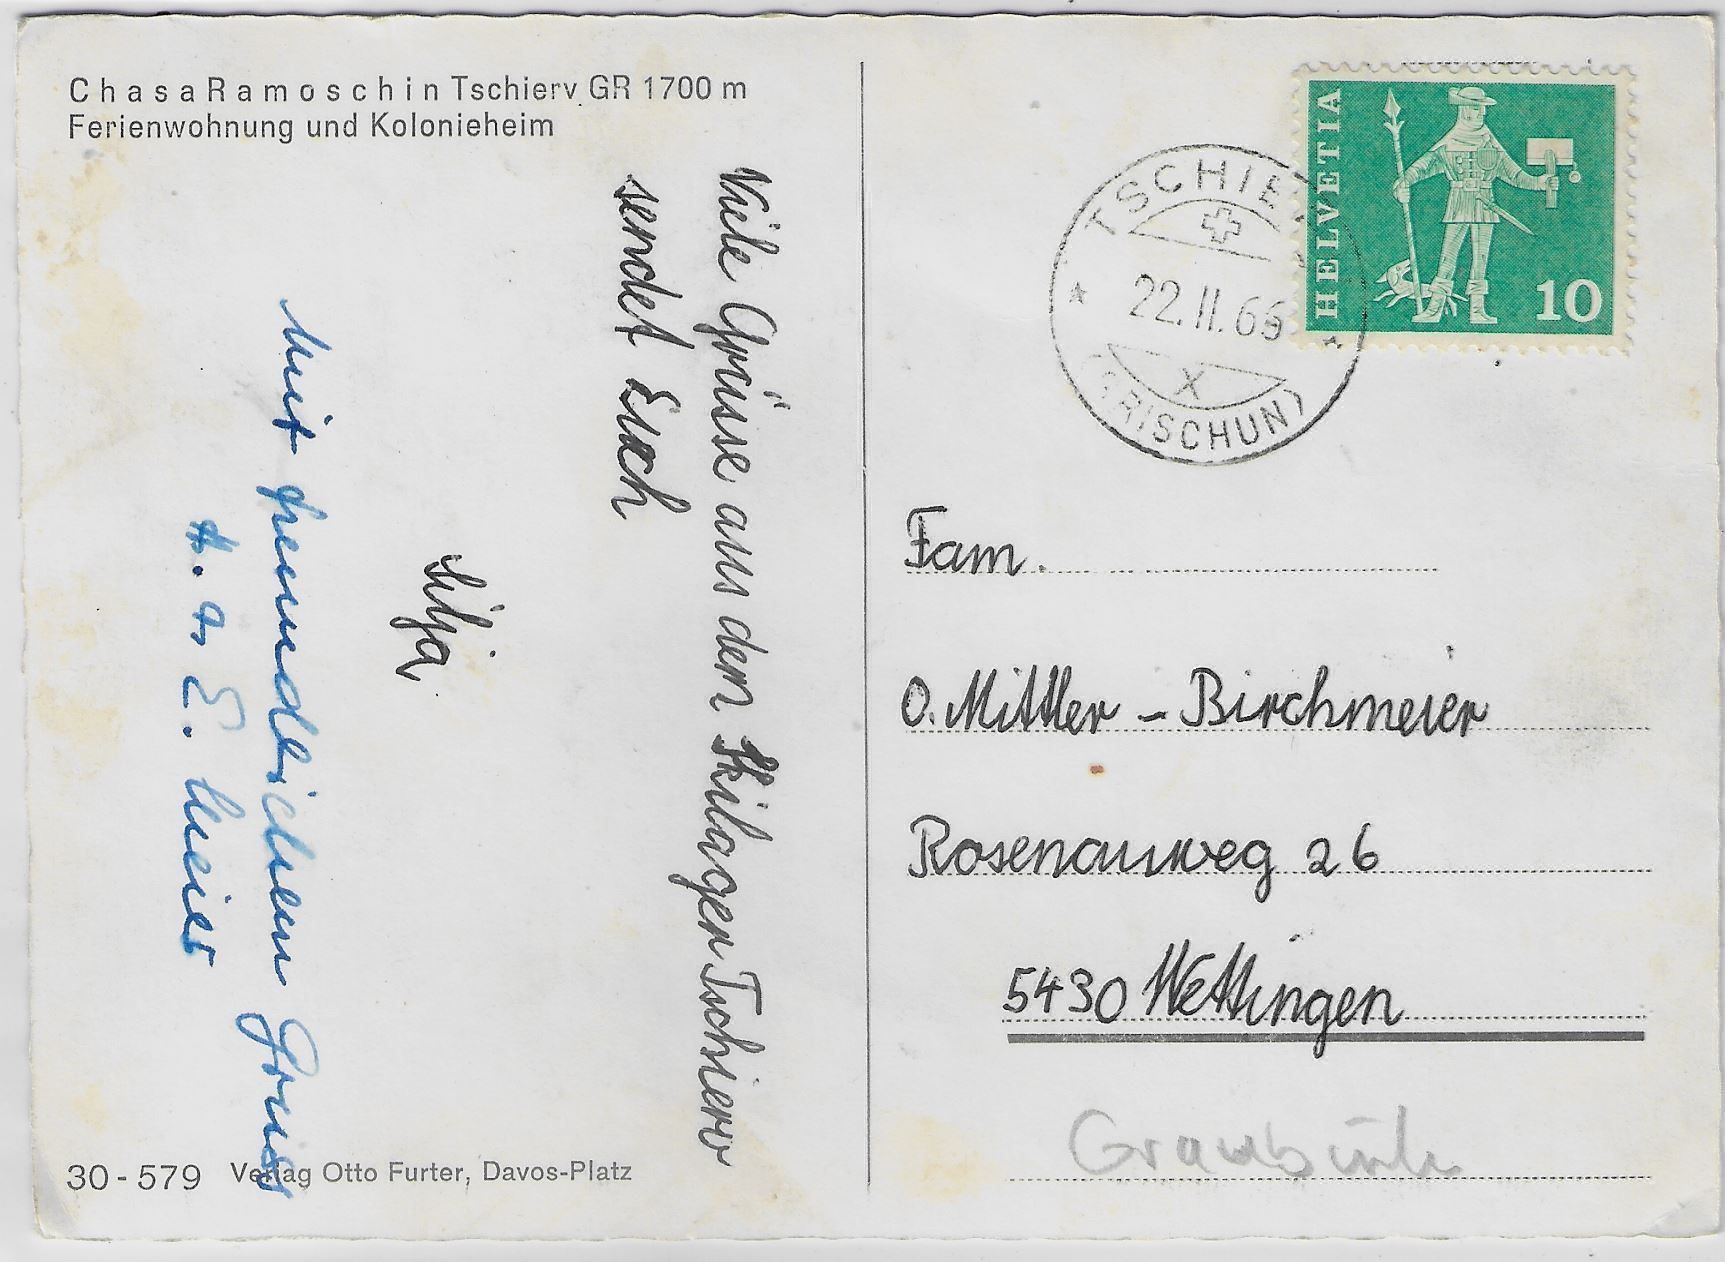 Chasa Ramoschin Tschierv GR 1700 m
Ferienwohnung und Kolonieheim
Viele Grüsse aus dem Skilager Tschierv
sendet Euch
Silja
Mit freundlichem Gruss
H. u. E. Meier
30-579 Verlag Otto Furter, Davos-Platz
HELVETIA
10
TSCHIE
22.II.66
X
(GRISCHUN)
Fam.
O. Mittler - Birchmeier
Rosenauweg 26
5430 Wettingen